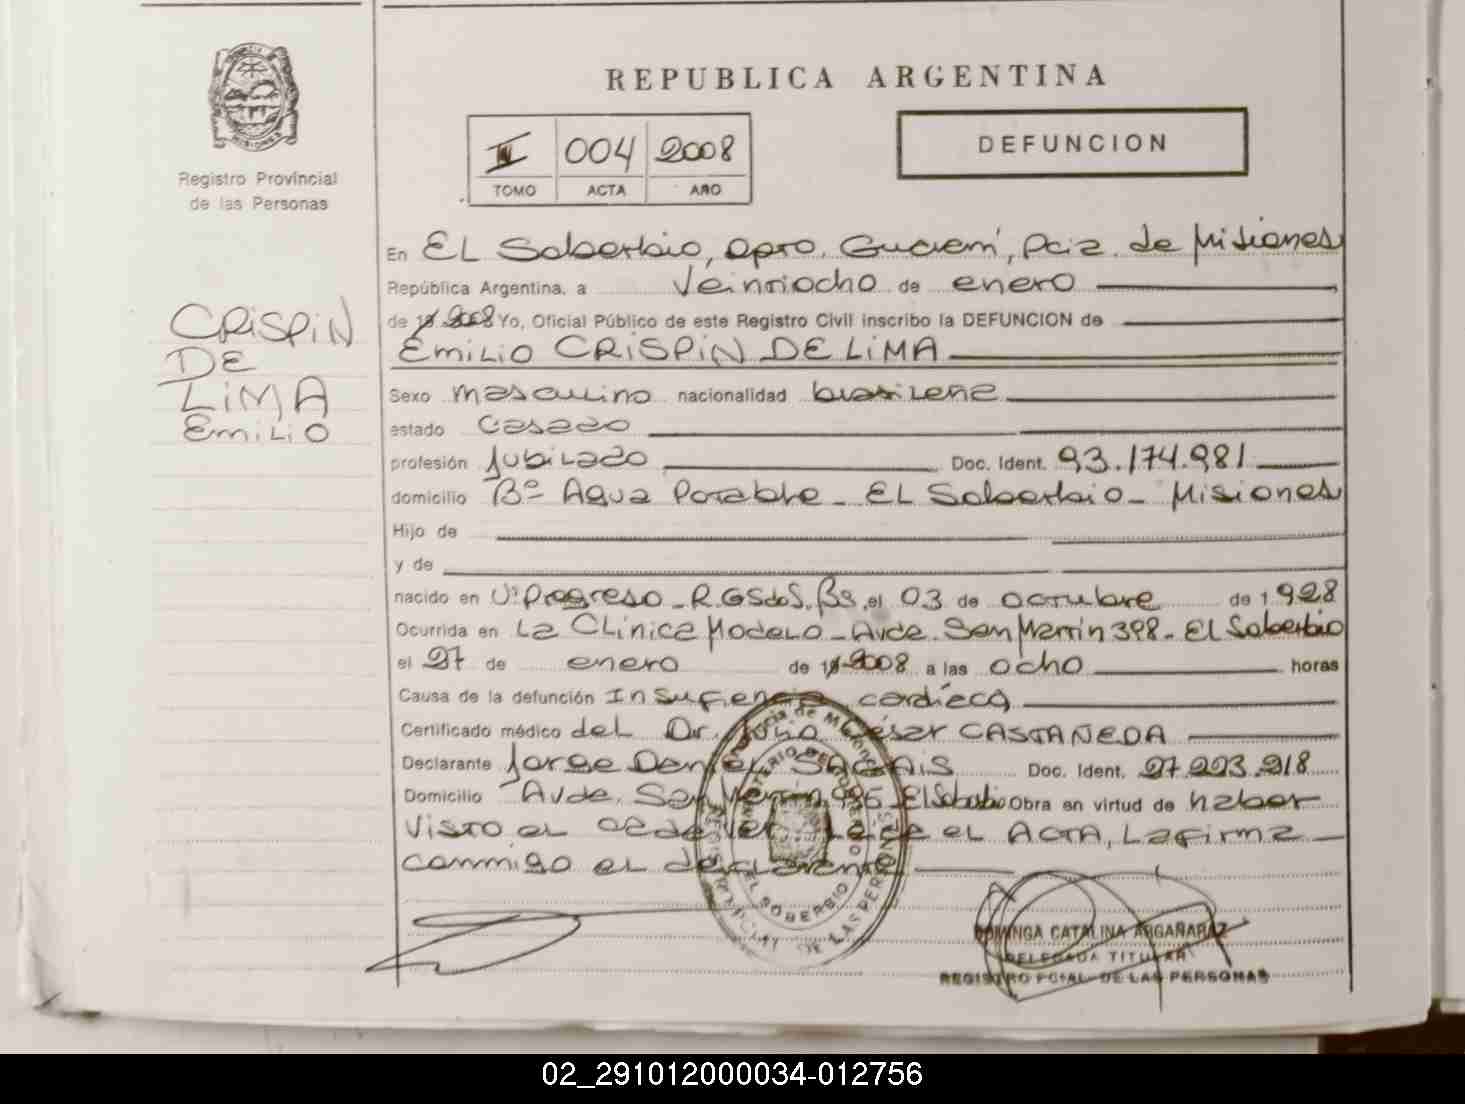 REPUBLICA ARGENTINA
DEFUNCION
004 2008
TOMO ACTA AÑO
Registro Provincial
de las Personas
CRISPIN
DE
LIMA
EmiLIO
En EL Soberbio, Dpto. Guaraní, Pcia. de Misiones
República Argentina, a Veintiocho de enero
de 19 2008 Yo, Oficial Público de este Registro Civil inscribo la DEFUNCION de
EmiLIO CRISPIN DE LIMA
Sexo masculino nacionalidad brasileña
estado casado
profesión Jubilado Doc. Ident. 93.174.981
domicilio Bº Agua Potable - EL Soberbio - Misiones
Hijo de
y de
nacido en Vª Progreso - R.GSdoS. BS, el 03 de octubre de 1 928
Ocurrida en La Clínica Modelo - Avda. San Martín 398 - El Soberbio
el 27 de enero de 19 2008 a las ocho horas
Causa de la defunción Insufiencia cardíaca
Certificado médico del Dr. Julio César CASTAÑEDA
Declarante Jorge Daniel Doc. Ident. 27.223.218
Domicilio Avda. San Martín El Soberbio Obra en virtud de haber
visto el cadaver Leída el ACTA, La firma
conmigo el declarante
Provincia de Misiones
MINISTERIO DE GOBIERNO
EL SOBERBIO
REGISTRO PROVINCIAL DE LAS PERSONAS
DOMINGA CATALINA ARGAÑARAZ
DELEGADA TITULAR
REGISTRO PCIAL. DE LAS PERSONAS
02_291012000034-012756